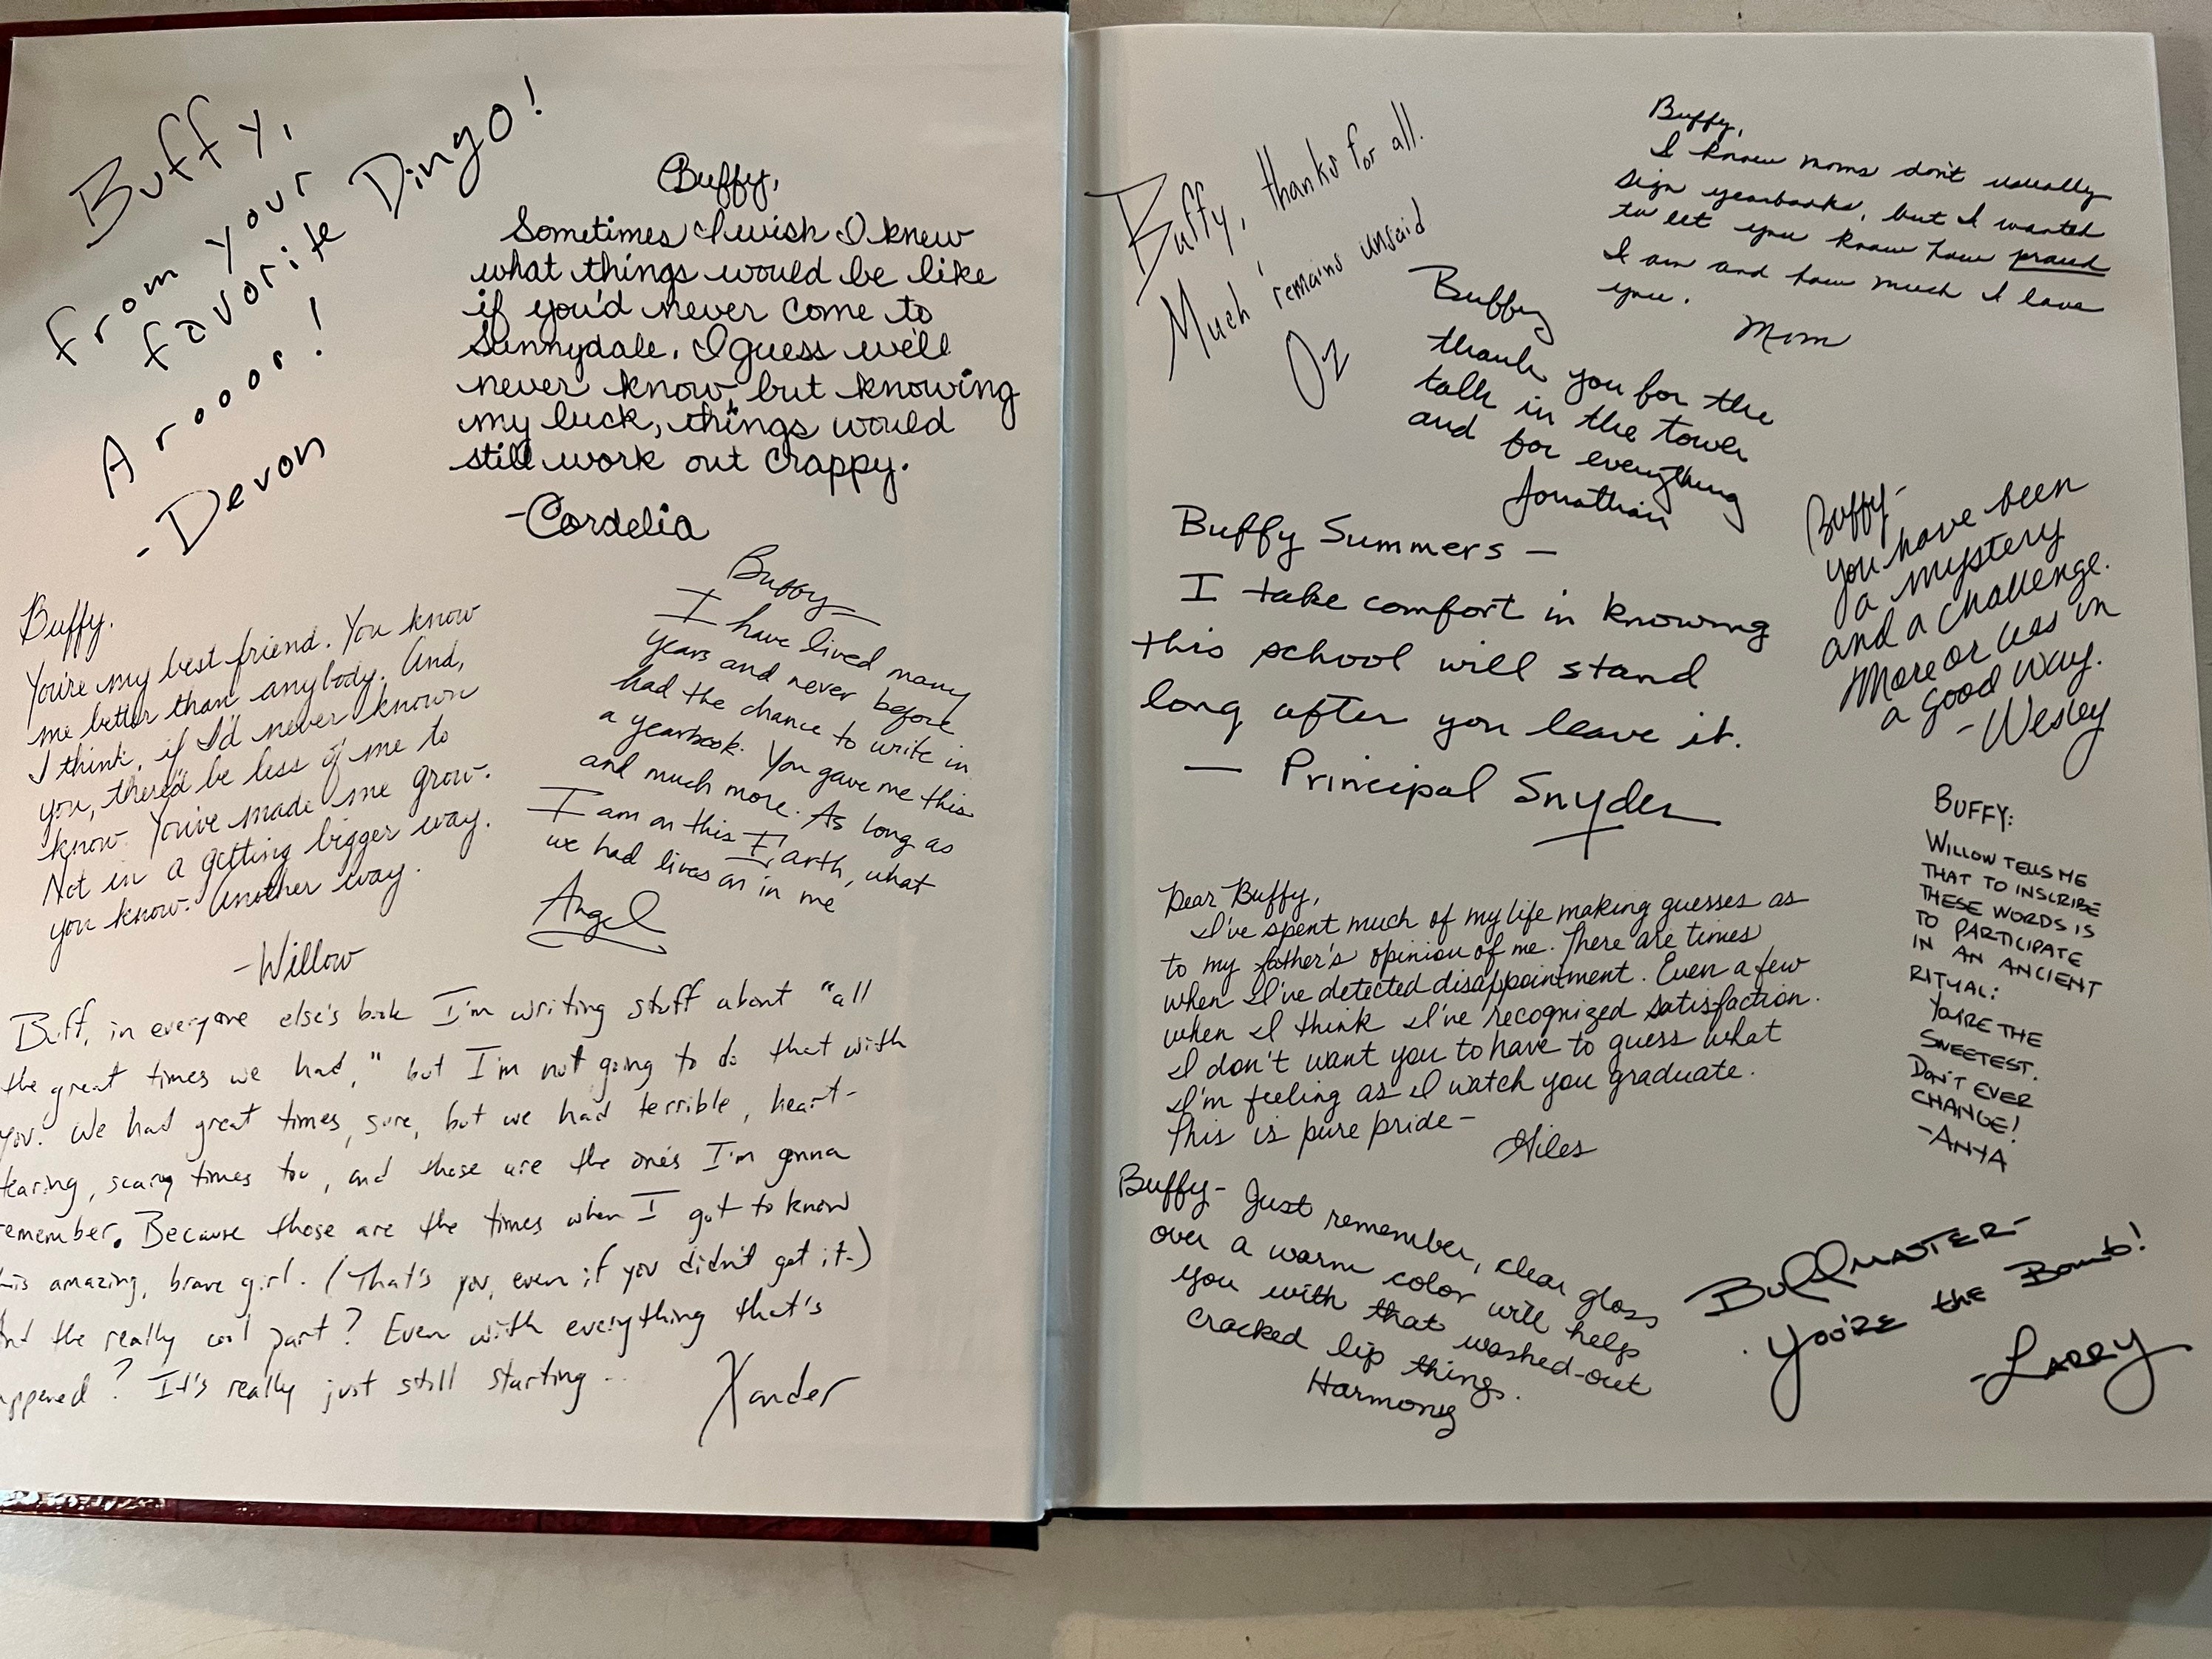 Buffy,
from your
favorite Dingo!
Arooor!
-Devon
Buffy,
Sometimes I wish I knew
what things would be like
if you'd never come to
Sunnydale. I guess we'll
never know, but knowing
my luck, things would
still work out crappy.
-Cordelia
Buffy.
You're my best friend. You know
me better than anybody. And,
I think, if I'd never known
you, there'd be less of me to
know. You've made me grow.
Not in a getting bigger way.
you know. Another way.
-Willow
Buffy-
I have lived many
years and never before
had the chance to write in
a yearbook. You gave me this
and much more. As long as
I am on this Earth, what
we had lives on in me
Angel
Buff, in everyone else's book I'm writing stuff about "all
the great times we had," but I'm not going to do that with
you. We had great times, sure, but we had terrible, heart-
tearing, scary times too, and those are the ones I'm gonna
remember. Because those are the times when I got to know
this amazing, brave girl. (That's you, even if you didn't get it.)
And the really cool part? Even with everything that's
happened? It's really just still starting...
Xander
Buffy, thanks for all.
Much remains unsaid
Oz
Buffy,
I know moms don't usually
sign yearbooks, but I wanted
to let you know how proud
I am and how much I love
you.
Mom
Buffy
thank you for the
talk in the tower
and for everything
Jonathan
Buffy Summers —
I take comfort in knowing
this school will stand
long after you leave it.
— Principal Snyder
Buffy-
You have been
a mystery
and a challenge.
More or less in
a good way.
-Wesley
BUFFY:
WILLOW TELLS ME
THAT TO INSCRIBE
THESE WORDS IS
TO PARTICIPATE
IN AN ANCIENT
RITUAL:
YOU'RE THE
SWEETEST.
DON'T EVER
CHANGE!
-ANYA
Dear Buffy,
I've spent much of my life making guesses as
to my father's opinion of me. There are times
when I've detected disappointment. Even a few
when I think I've recognized satisfaction.
I don't want you to have to guess what
I'm feeling as I watch you graduate.
This is pure pride-
Giles
Buffy- Just remember, clear gloss
over a warm color will help
you with that washed-out
cracked lip thing.
Harmony
Buffmaster-
You're the Bomb!
-Larry